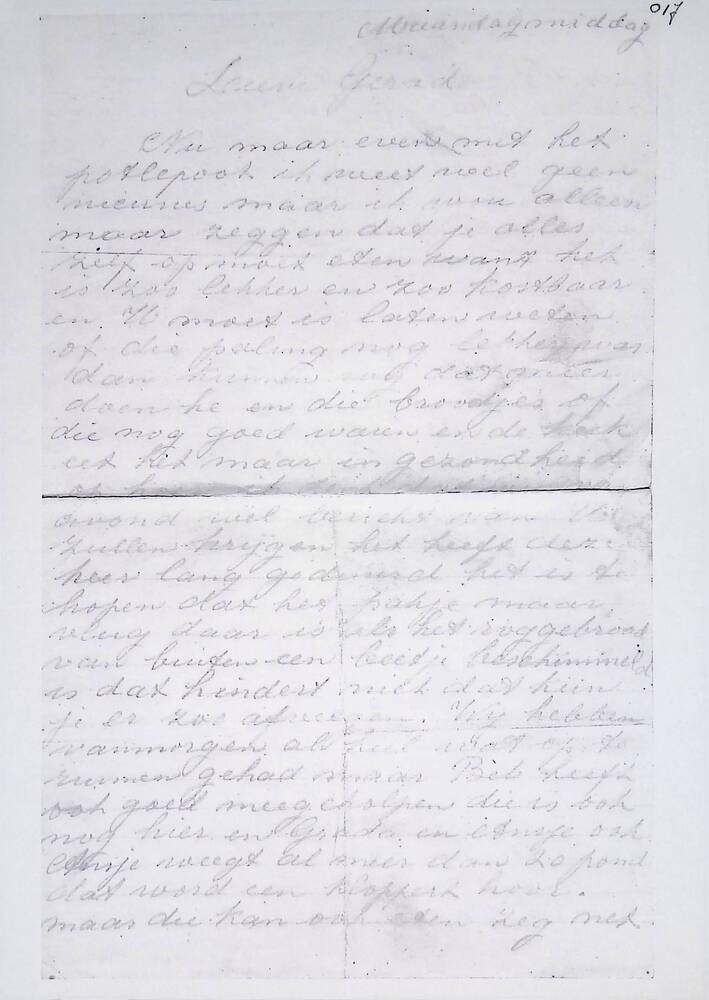 017
Maandagmiddag
Lieve Gerard
Nu maar even met het
potlepoot ik weet wel geen
nieuws maar ik wou alleen
maar zeggen dat je alles
zelf op moet eten want het
is zoo lekker en zoo kostbaar
en. U moet is laten weten
of die paling nog lekker was
dan kunnen wij dat meer
doen he en die broodjes of
die nog goed waren en de koek
eet het maar in gezondheid
op
avond wel bericht van U
zullen krijgen het heeft deze
keer lang geduurd het is te
hopen dat het pakje maar
vlug daar is als het roggebrood
van buiten een beetje beschimmeld
is dat hindert niet dat kun
je er zoo afvegen. Wij hebben
vanmorgen al heel wat op te
ruimen gehad maar Beb heeft
ook goed meegeholpen die is ook
nog hier en Grada en Ansje ook
Ansje weegt al meer dan 20 pond
dat word een kloppert hoor.
maar die kan ook eten zeg net